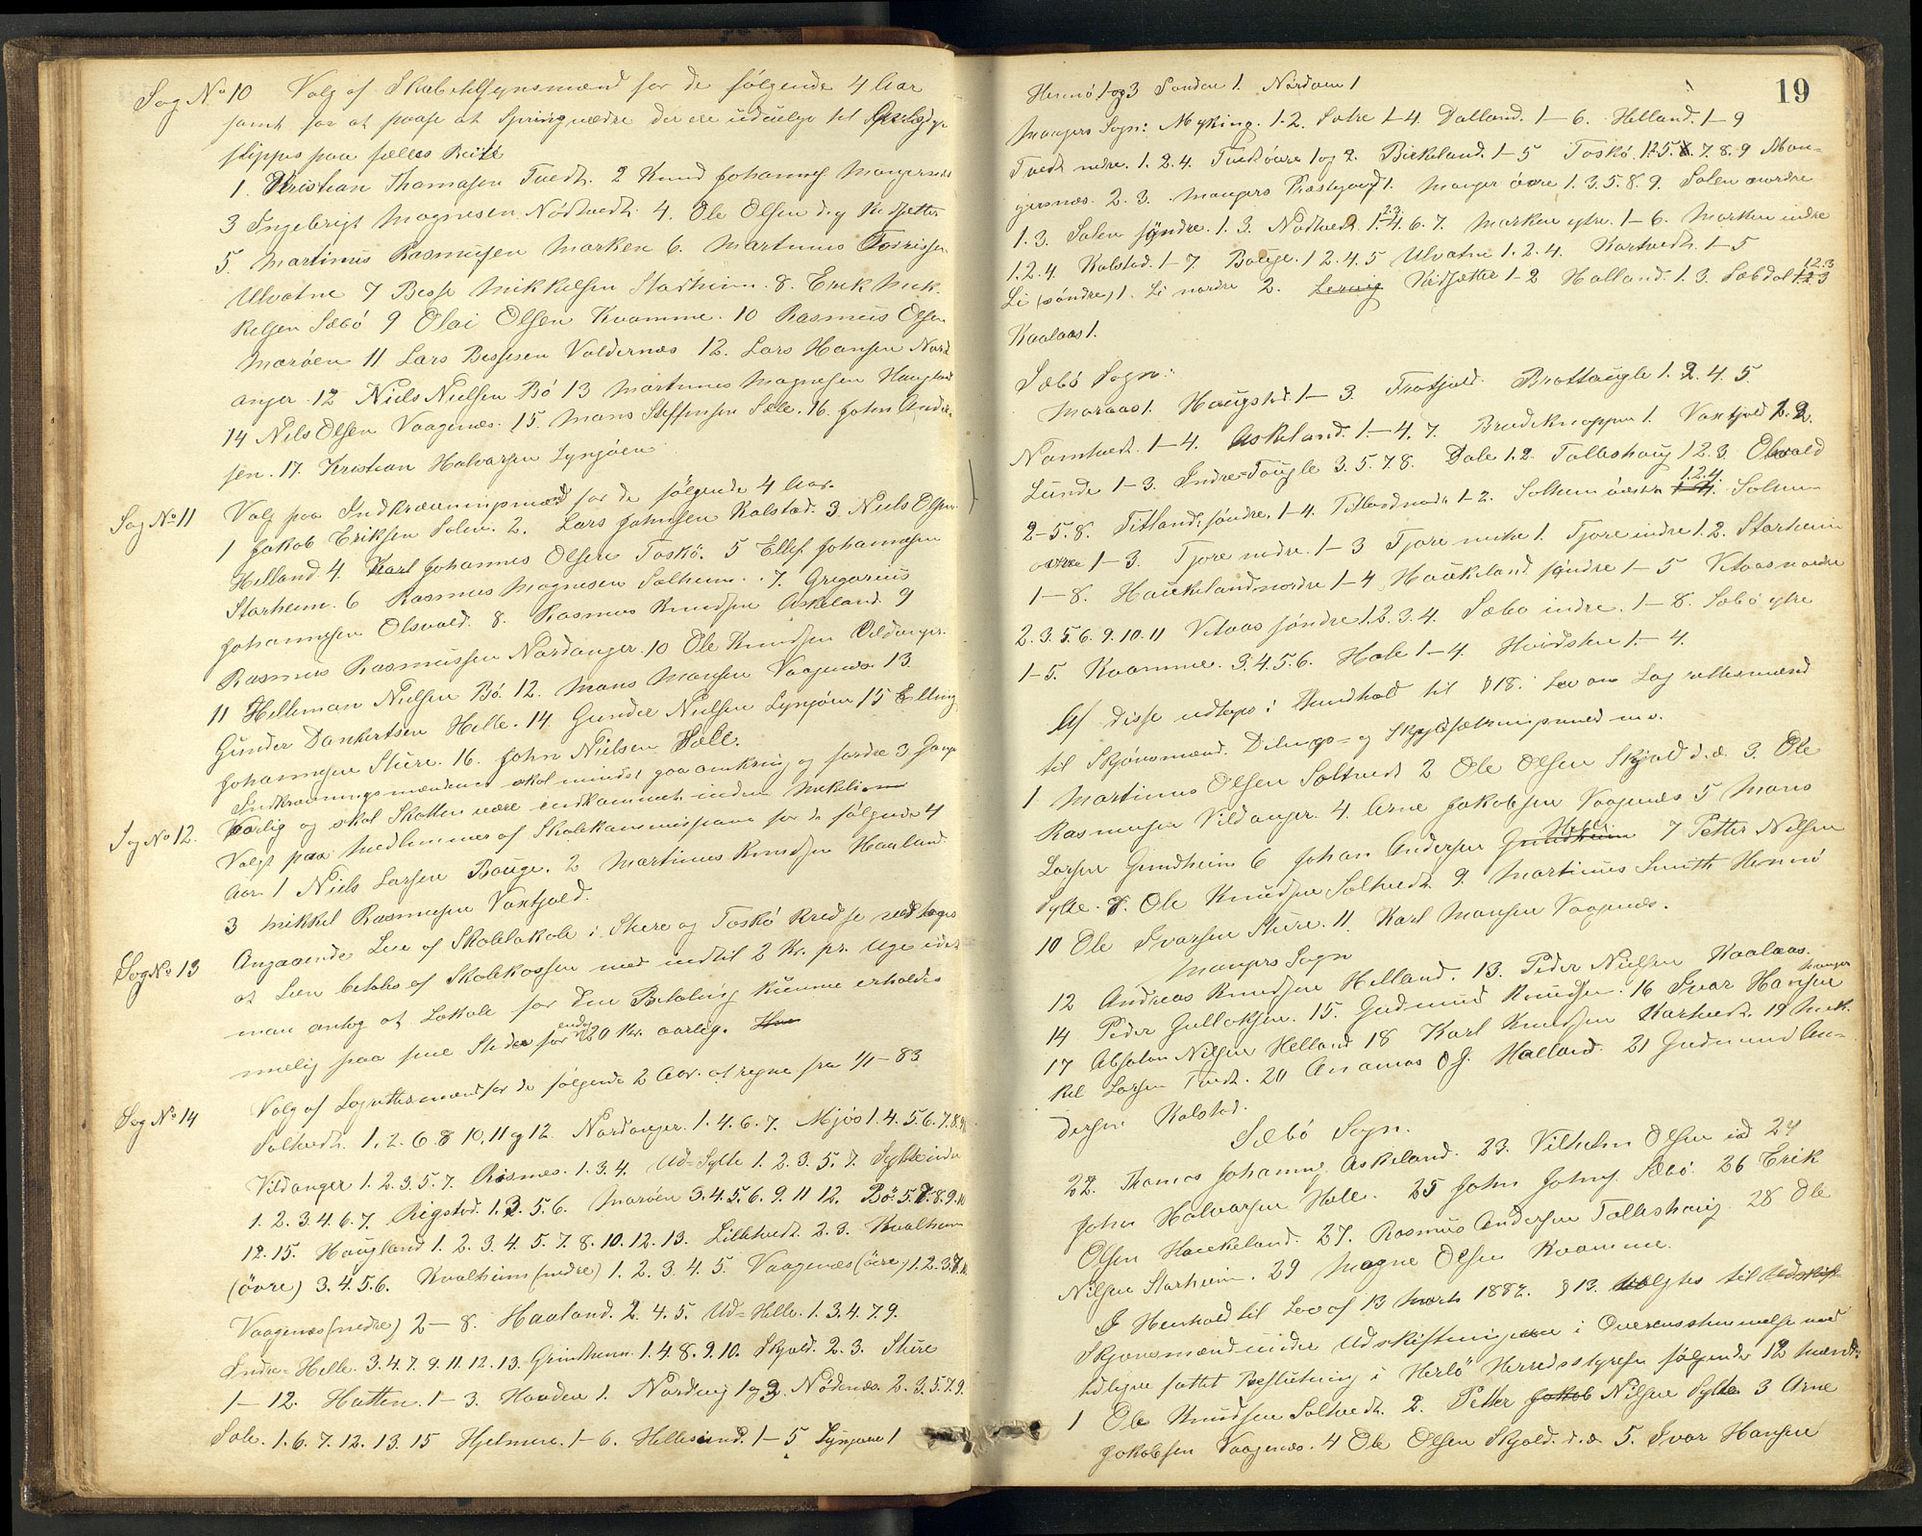 Sag No 10 Valg af Skabetilsynsmænd for de følgende 4 Aar
samt for at paase at Springvædre der ere uduelige til
slippes paa fælles Beite
1. Kristian Thomasen Tvedt. 2 Knud Johannes Mangersnes
3 Ingebrigt Magnesen Nøttvedt. 4. Ole Olsen d.y. Vidsetter
5. Martinus Rasmussen Marken 6. Martinus Torrissen
Ulvatne 7 Besse Mikkelsen Starheim. 8. Erik Mik-
kelsen Sæbö 9 Olai Olsen Kvamme. 10 Rasmus Olsen
Maröen 11 Lars Bessesen Valdernæs 12. Lars Hansen Nord
anger. 12 Niels Nielsen Bö 13 Martinus Magnesen Haugland
14 Nils Olsen Vaagenæs. 15. Mans Steffensen Sæle. 16. John Ander-
sen. 17. Kristian Halvorsen Lynjöen
Sag No 11 Valg paa Indkrævningsmænd for de følgende 4 Aar.
1 Jakob Eriksen Solem. 2. Lars Johnsen Kalstad. 3. Niels Olsen
Helland 4. Karl Johannes Olsen Toskö. 5 Ellef Johannesen
Starheim. 6 Rasmus Magnesen Solheim. 7. Gregorius
Johannesen Olsvold. 8. Rasmus Knudsen Askeland. 9
Rasmus Rasmussen Nordanger. 10 Ole Knudsen Vildanger.
11 Helleman Nielsen Bö. 12. Mans Mansen Vaagenæs. 13.
Gunder Dankertsen Helle. 14. Gunder Nielsen Lynjöen 15 Elling
Johannesen Sture. 16. John Nielsen Sæle.
Indkrævningsmændene skal mindst gaa omkring og fordre 3 Gange
Sag No 12. aarlig og skal Skatten være indkommet inden Mikkeli
Valgt paa Medlemmer af Skolekommissionen for de følgende 4
Aar 1 Niels Larsen Bauge. 2 Martinus Knudsen Haaland
3 Mikkel Rasmussen Vaxtjold.
Sag No 13 Angaaende Leie af Skolelokale i Sture og Toskö Kredse vedtoges
at Leien betales af Skolekassen med indtil 2 Kr. pr. Uge idet
man antog at Lokale for den Betaling kunne erholdes
nemlig paa sine Steder for endog 20 Kr. aarlig.
Sag No 14 Valg af Lagrettesmænd for de følgende 2 Aar at regne fra 1/1-83
Soltvedt. 1. 2. 6. 8 10. 11 og 12. Nordanger. 1. 4. 6. 7. Mjös 1. 4. 5. 6. 7. 8. 9
Vildanger 1. 2. 3. 5. 7. Rosnes. 1. 3. 4. Ud-Sylte 1. 2. 3. 5. 7. Sylte indre
1. 2. 3. 4. 6. 7. Rigstad. 1. 3. 5. 6. Maröen 3. 4. 5. 6. 9. 11 12. Bö. 5. 7. 8. 9.
12. 15. Haugland 1. 2. 3. 4. 5. 7. 8. 10. 12. 13. Lilletvedt. 2. 3. Kvalheim
(övre) 3. 4. 5. 6. Kvalheim (nedre) 1. 2. 3. 4. 5. Vaagenæs (övre) 1. 2. 3. 7. 8.
Vaagenæs (nedre) 2-8. Haaland. 2. 4. 5. Ud-Helle. 1. 3. 4. 7. 9.
Indre-Helle. 3. 4. 7. 9. 11. 12. 13. Grindheim. 1. 4. 8. 9. 10. Skjold. 2. 3. Sture
1-12. Hatten. 1-3. Havden 1. Nordvig 1 og 3. Nödenæs 2. 3. 5. 7. 9.
Sæle. 1. 6. 7. 12. 13. 15 Hjelmen. 1-6. Hellesund. 1-5 Lynjöen 1
19
Hernö 1 og 3 Sondöen 1. Nordöen 1
Mangers Sogn: Myking. 1-2. Sætre 1-4. Dalland. 1-6. Helland. 1-9
Tvedt nedre. 1. 2. 4. Tvedt övre 1 og 2. Birkeland. 1-5 Toskö. 1. 2. 5. 7. 8. 9 Man-
gersnæs. 2. 3. Mangers Præstegaard 1. Manger övre 1. 3. 5. 8. 9. Solem nordre
1. 3. Solem söndre. 1. 3. Nöttvedt 1. 2. 3. 4. 6. 7. Marken ytre. 1-6. Marken indre
1. 2. 4 Kalstad. 1-7 Bauge. 1 2. 4. 5 Ulvatne 1. 2. 4. Kartvedt. 1-5
Li (söndre) 1. Li nordre 2. Leervig Vidsetter 1-2 Halland. 1. 3. Sæbdal 1. 2. 3
Kaalaas 1.
Sæbö Sogn:
Maraas 1. Haugstad. 1-3. Brattaugle 1. 2. 4. 5
Namtvedt. 1-4. Askeland. 1-4. 7. Bredeknappen 1. Vaxtjold 1. 2.
Lunde 1-3. Indre-Taugle 3. 5. 7. 8. Dale 1. 2. Talleshaug 1 2. 3. Olsvold
2-5. 8. Titland söndre. 1-4. Titland nordre 1-2. Solheim nedre 1. 2. 4. Solheim
övre 1-3. Tjore nedre. 1-3 Tjore midtre 1. Tjore indre 1. 2. Starheim
1-8. Haukeland nordre 1-4 Haukeland söndre 1-5 Vetaas nordre
2. 3. 5. 6. 9. 10. 11 Vetaas söndre 1. 2. 3. 4. Sæbö indre. 1-8. Sæbö ytre
1-5. Kvamme. 3. 4. 5. 6. Hole 1-4 Hvidsten 1-4.
Af disse udtoges i Henhold til § 18. i Lov om Lagrettesmænd
til Skjönsmænd. Delings- og Skydsætningsmænd m.v.
1 Martinus Olsen Soltvedt 2 Ole Olsen Skjold d.æ. 3. Ole
Rasmussen Vildanger. 4. Arne Jakobsen Vaagenæs 5 Mans
Larsen Grindheim 6 Johan Andersen Grindheim Helle 7 Petter Nilsen
Sylte. 8. Ole Knudsen Soltvedt 9. Martinus Smith Hernö
10 Ole Ivarsen Sture. 11. Karl Mansen Vaagenæs.
Mangers Sogn
12 Andreas Knudsen Helland. 13. Peder Nielsen Kaalaas.
14 Peder Gullaksen. 15. Gudmund Knudsen. 16 Ivar Hansen Manger
17 Absalon Nilsen Helland 18 Karl Knudsen Kartvedt. 19 Mik-
kel Larsen Tvedt. 20 Ananias O J. Halland. 21 Gudmund An-
dersen Kalstad.
Sæbö Sogn.
22. Thomas Johannes. Askeland. 23. Vilhelm Olsen ibd 24
John Halvorsen Hole. 25 John Johns. Sæbö. 26 Erik
Olsen Haukeland. 27. Rasmus Andersen Talleshaug 28 Ole
Nilsen Starheim. 29 Magne Olsen Kvamme.
I Henhold til Lov af 13 Marts 1882. § 13. valgtes til Udskift-
Skjönsmænd under Udskiftningen i Overensstemmelse med
tidligere fattet Beslutning i Herlö Herredsstyrelse følgende 12 Mænd:
1 Ole Knudsen Soltvedt. 2. Petter Jakob Nilsen Sylte 3 Arne
Jakobsen Vaagenæs. 4 Ole Olsen Skjold. d.æ 5. Ivar Hansen